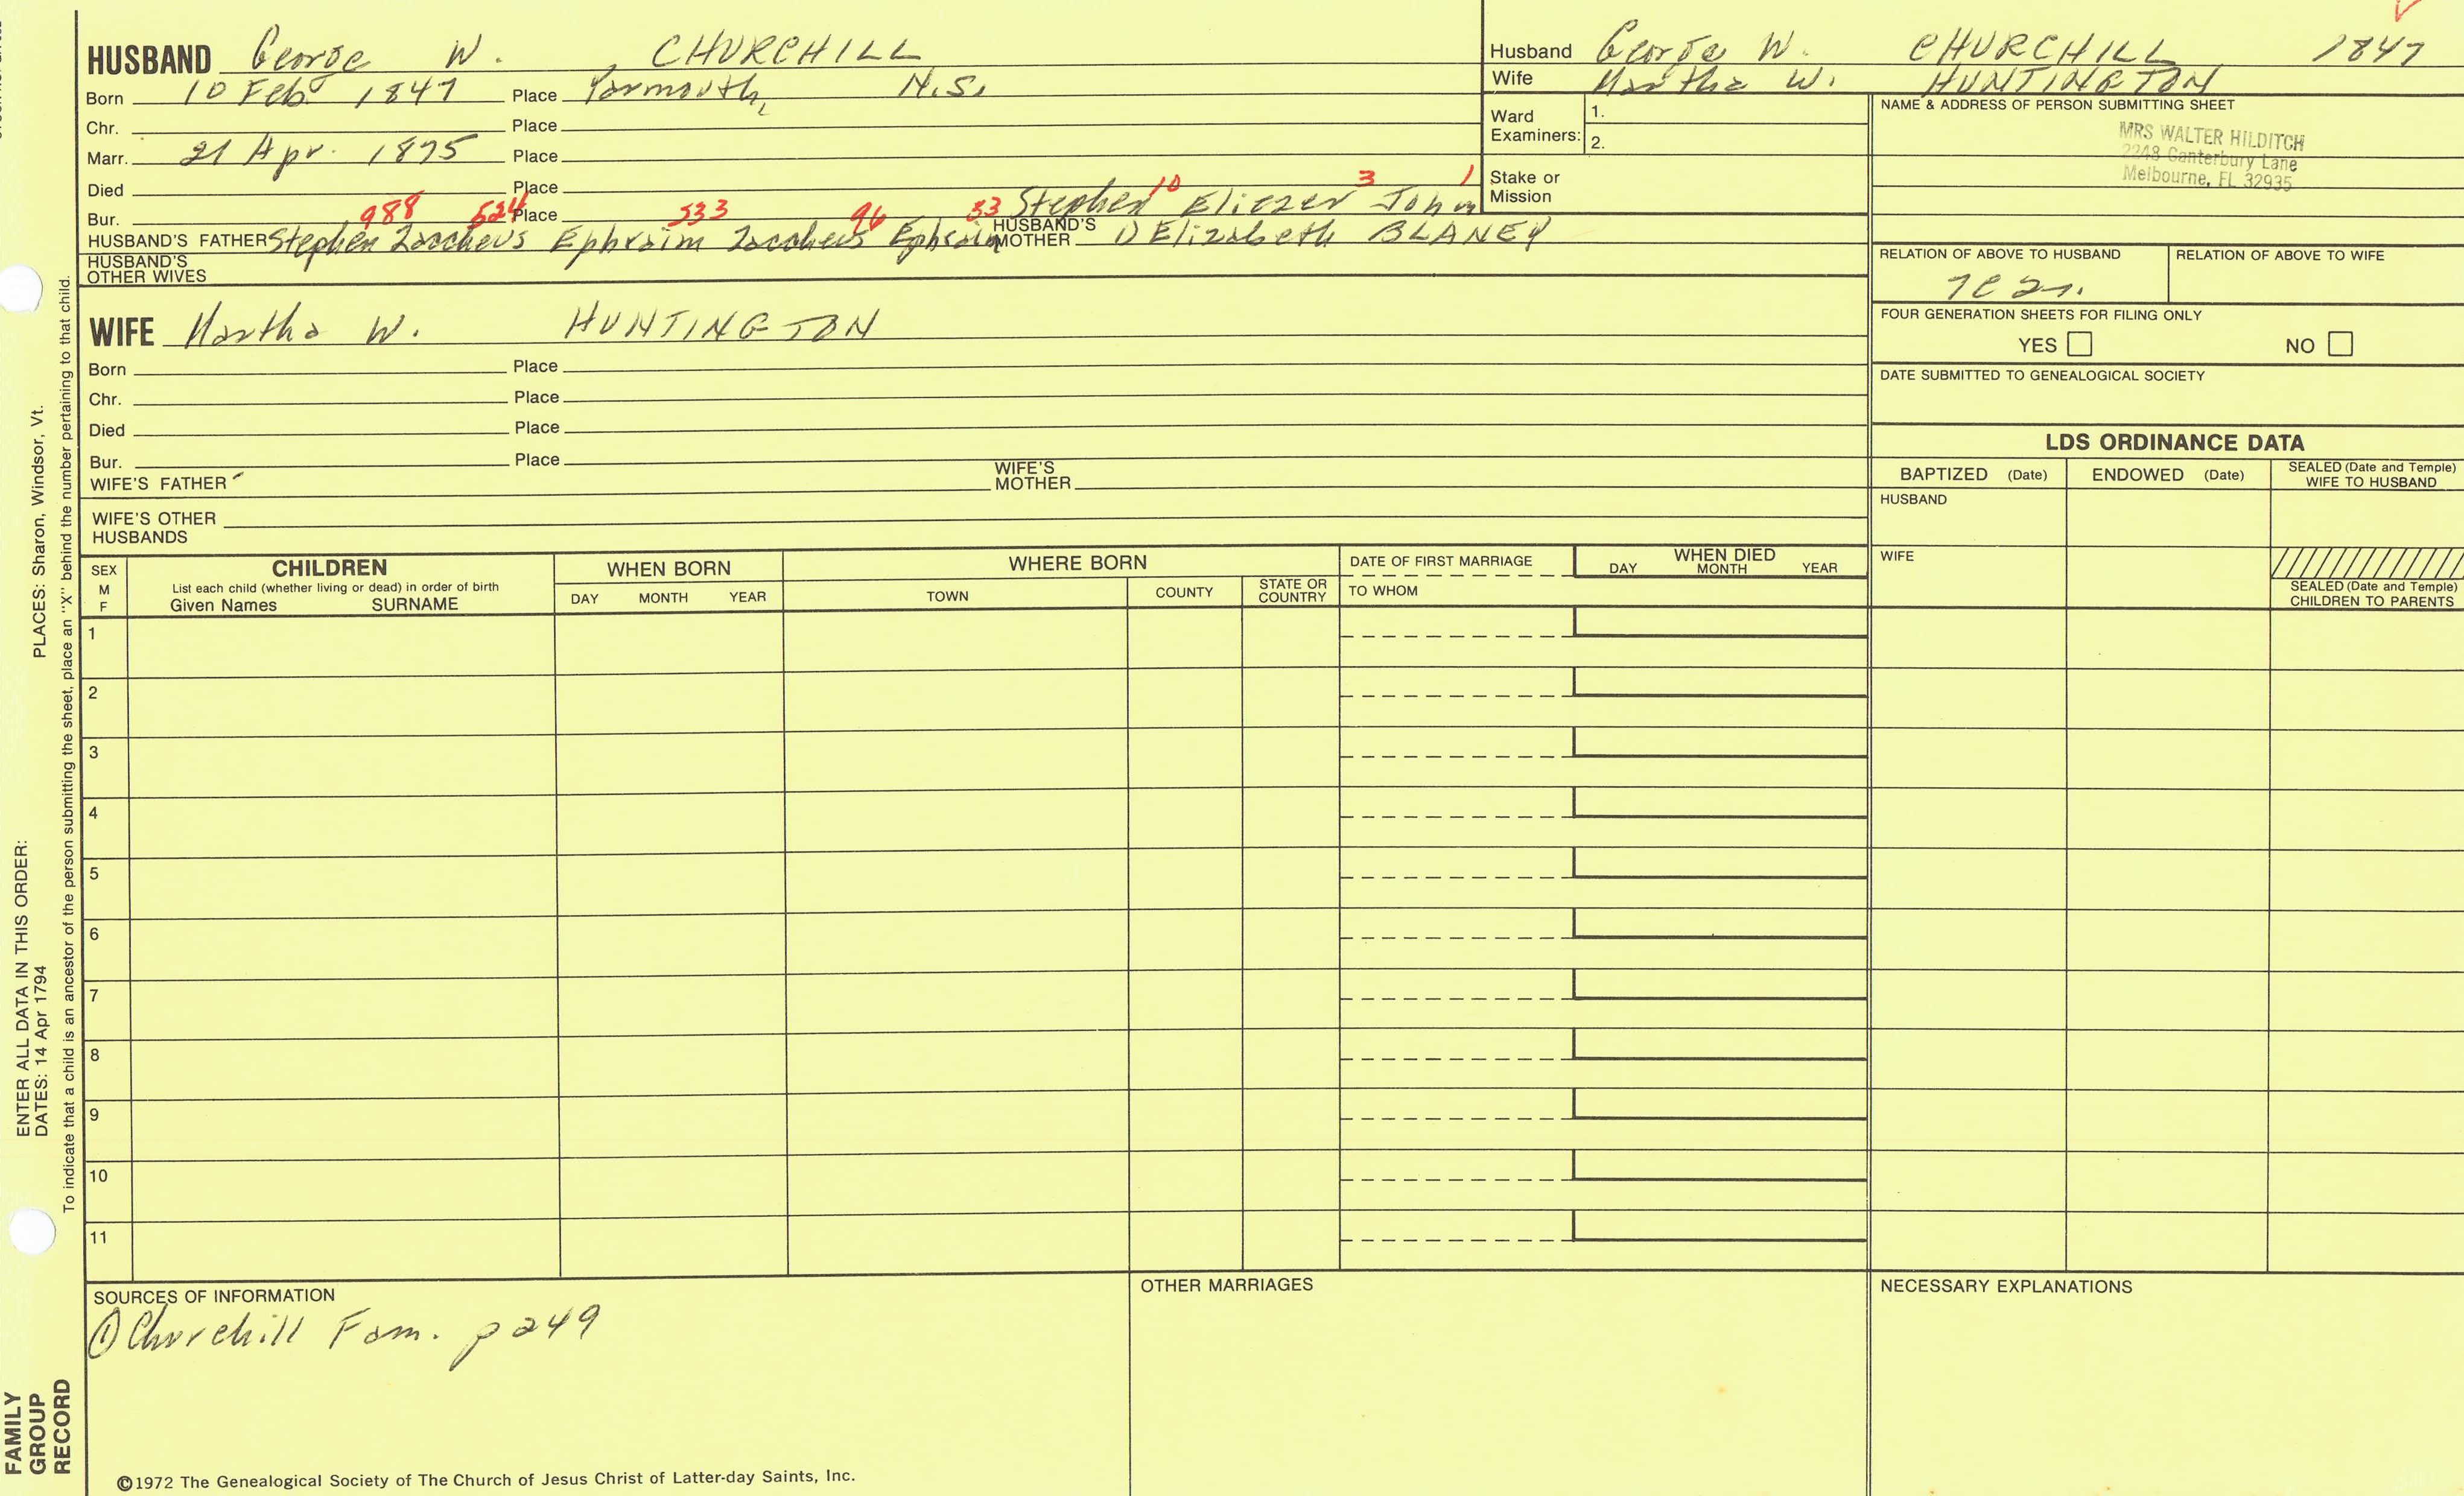 HUSBAND George W. CHURCHILL
Born 10 Feb 1847 Place Yarmouth, N.S.
Chr. Place
Marr. 21 Apr. 1875 Place
Died Place
Bur. Place
988 524 533 96 33 10 3 1
Stephen Eliezer John
HUSBAND'S FATHER Stephen Zaccheus Ephraim Zaccheus Ephraim HUSBAND'S MOTHER Elizabeth BLANEY
HUSBAND'S OTHER WIVES
WIFE Martha W. HUNTINGTON
Born Place
Chr. Place
Died Place
Bur. Place
WIFE'S FATHER WIFE'S MOTHER
WIFE'S OTHER HUSBANDS
Husband George W. CHURCHILL 1847
Wife Martha W. HUNTINGTON
Ward Examiners: 1.
2.
Stake or Mission
NAME & ADDRESS OF PERSON SUBMITTING SHEET
MRS WALTER HILDITCH
2248 Canterbury Lane
Melbourne, FL 32935
RELATION OF ABOVE TO HUSBAND RELATION OF ABOVE TO WIFE
FOUR GENERATION SHEETS FOR FILING ONLY
YES NO
DATE SUBMITTED TO GENEALOGICAL SOCIETY
LDS ORDINANCE DATA
BAPTIZED (Date) ENDOWED (Date) SEALED (Date and Temple) WIFE TO HUSBAND
HUSBAND
WIFE
SEALED (Date and Temple) CHILDREN TO PARENTS
SEX M F
CHILDREN
List each child (whether living or dead) in order of birth
Given Names SURNAME
WHEN BORN
DAY MONTH YEAR
WHERE BORN
TOWN COUNTY STATE OR COUNTRY
DATE OF FIRST MARRIAGE
TO WHOM
WHEN DIED
DAY MONTH YEAR
1
2
3
4
5
6
7
8
9
10
11
SOURCES OF INFORMATION
① Churchill Fam. p 249
OTHER MARRIAGES
NECESSARY EXPLANATIONS
©1972 The Genealogical Society of The Church of Jesus Christ of Latter-day Saints, Inc.
FAMILY GROUP RECORD
ENTER ALL DATA IN THIS ORDER:
DATES: 14 Apr 1794 PLACES: Sharon, Windsor, Vt.
To indicate that a child is an ancestor of the person submitting the sheet, place an "X" behind the number pertaining to that child.